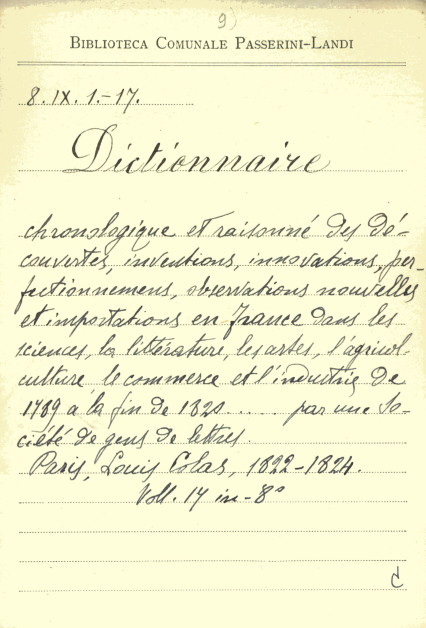 9)
BIBLIOTECA COMUNALE PASSERINI-LANDI
8. IX. 1.-17.
Dictionnaire
chronologique et raisonné des dé-
couvertes, inventions, innovations, per-
fectionnemens, observations nouvelles
et importations en France dans les
sciences, la littérature, les artes, l'agricol-
culture, le commerce et l'industrie de
1789 a la fin de 1820 ..... par une so-
ciété de gens de lettres.
Paris, Louis Colas, 1822-1824.
Voll. 17 in-8°
C